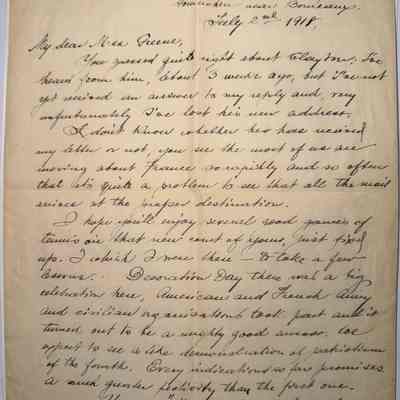 near
July 2nd 1918.
My dear Miss Greene,
You guessed quite right about Clayton. I've
heard from him, about 3 weeks ago, but I've not
yet received an answer to my reply and very
unfortunately I've lost his new address.
I don't know whether he has received
my letter or not, you see the most of us are
moving about France so rapidly and so often
that it's quite a problem to see that all the mail
arrives at the proper destination.
I hope you'll enjoy several good games of
tennis on that new court of yours, just fixed
up. I wish I were there - to take a few
lessons. Decoration Day there was a big
celebration here, American and French Army
and civilian organizations took part and it
turned out to be a mighty good success. We
expect to see a like demonstration of patriotism
of the fourth. Every indication so far promises
a much greater festivity than the first one.